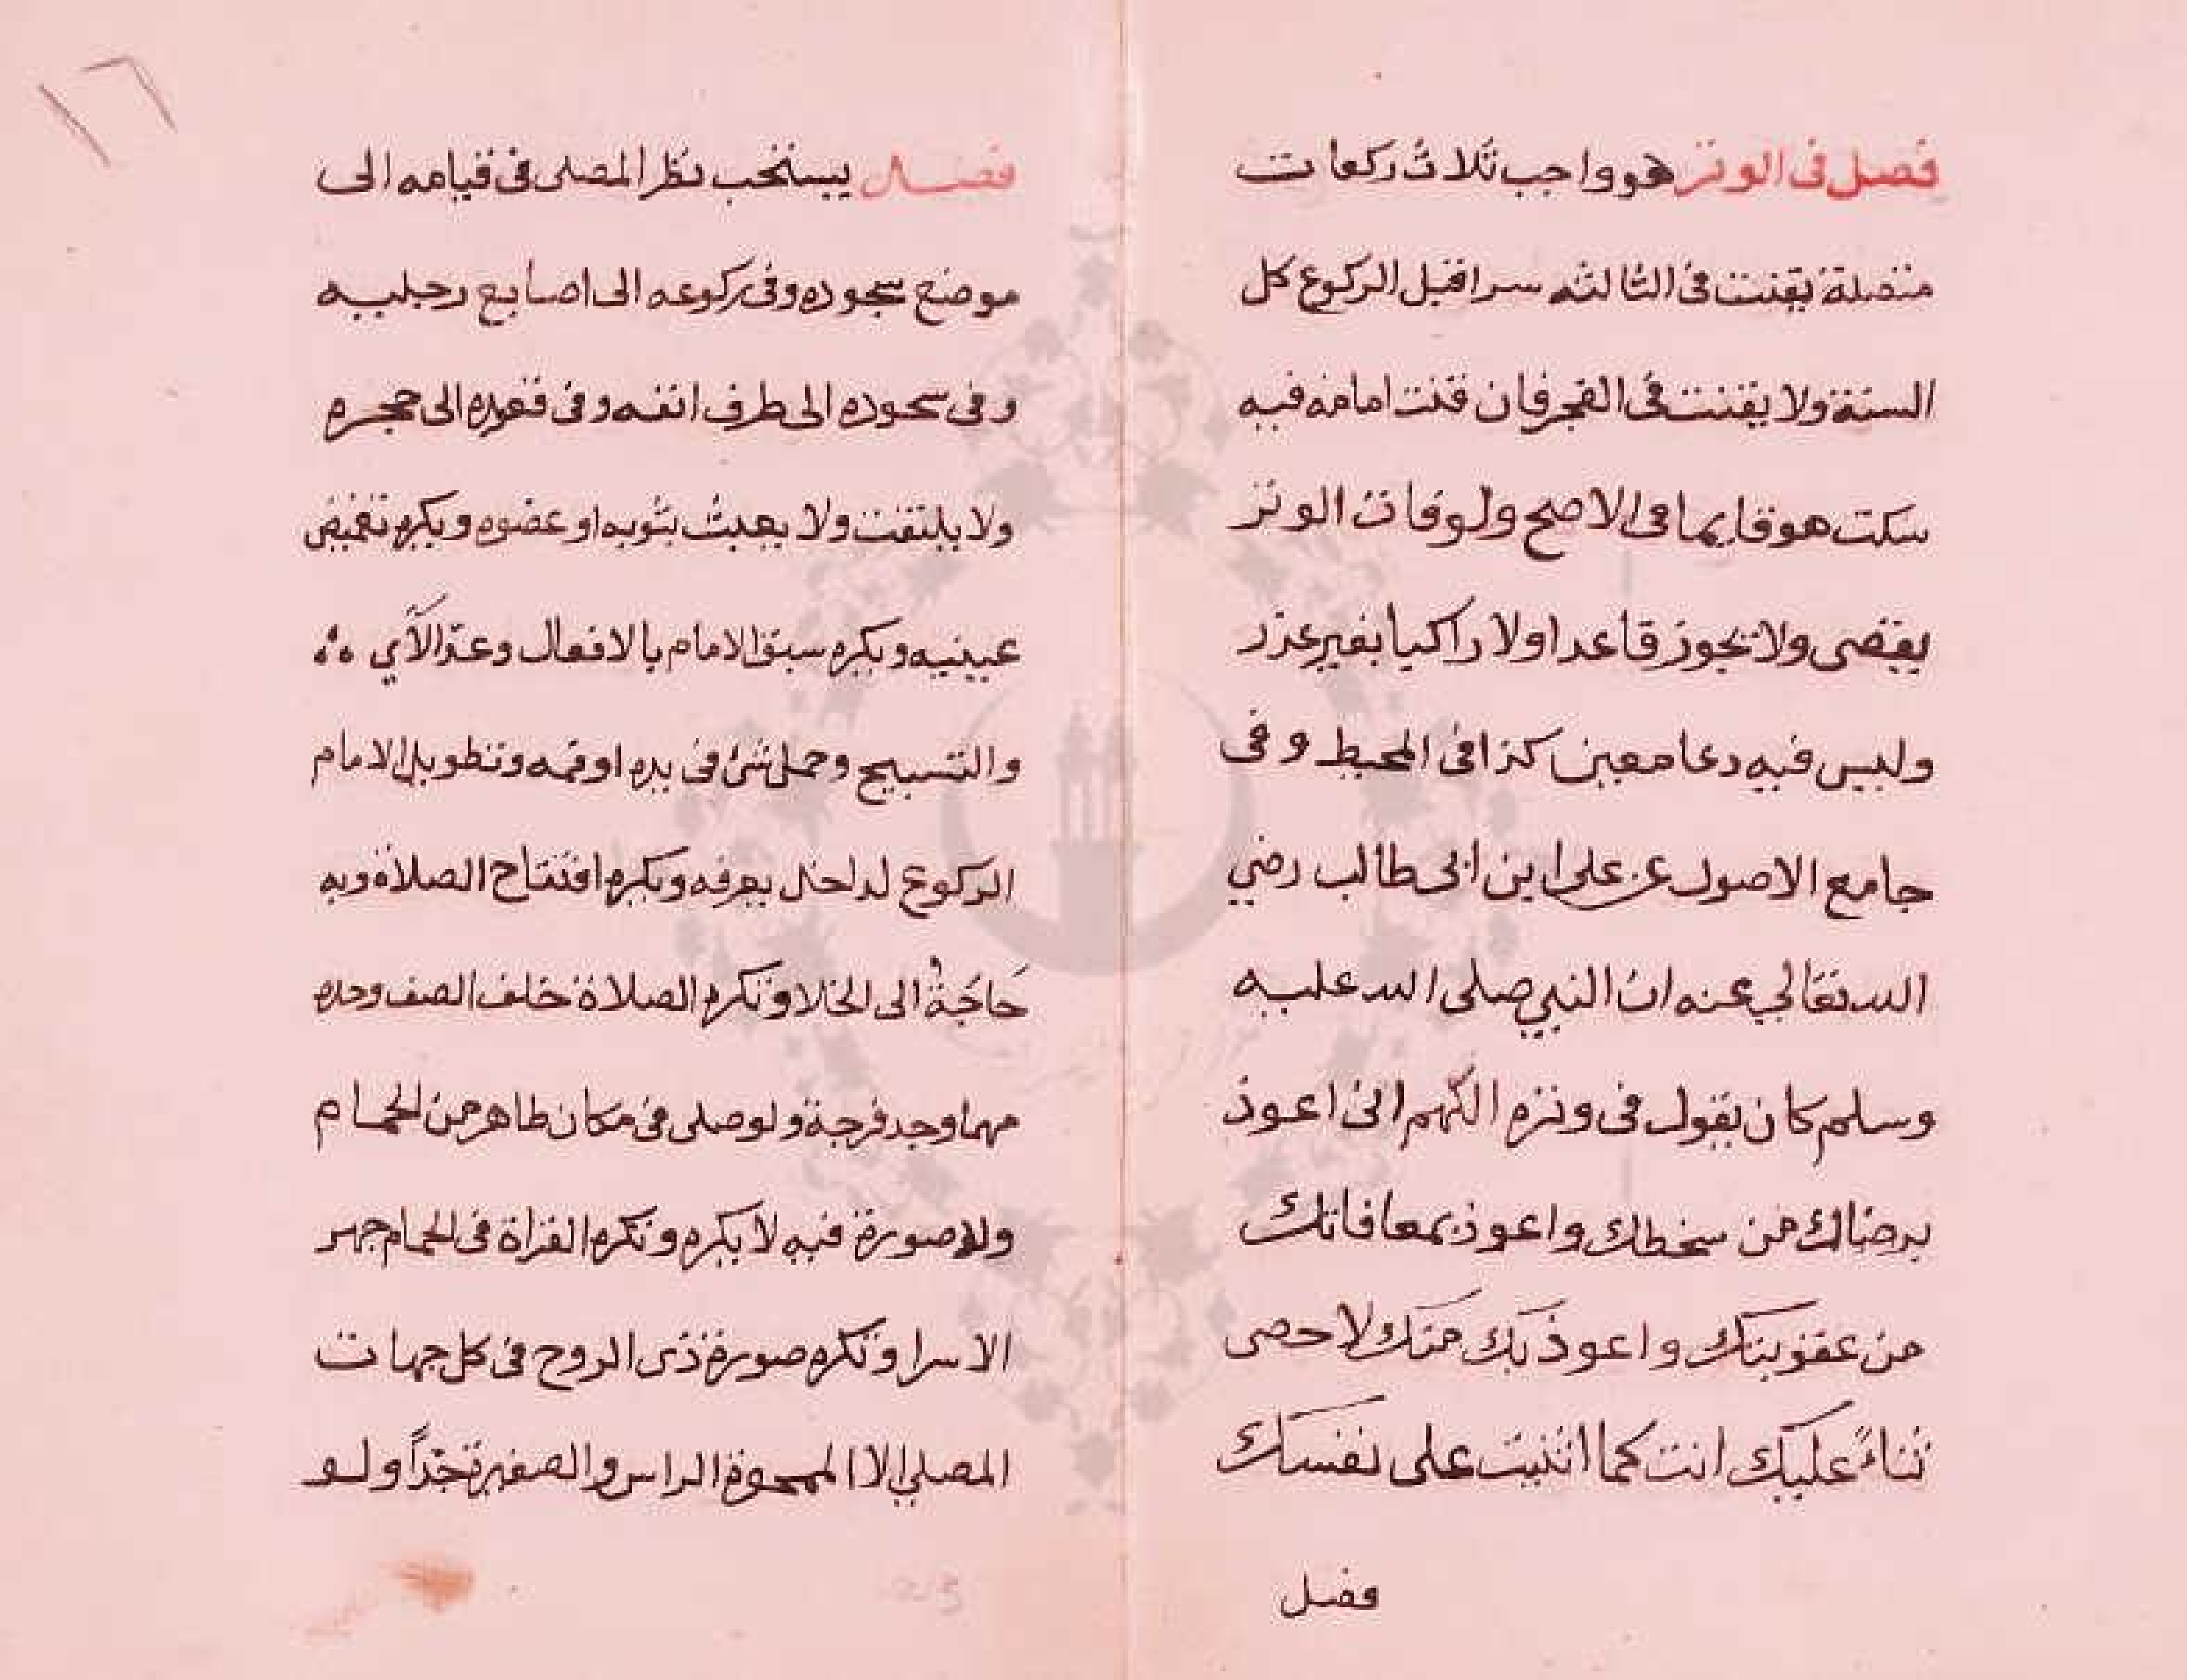 فصل فى الوتر هو واجب ثلاث ركعات
متصلة يقنت فى الثالثه سرا قبل الركوع كل
السنة ولا يقنت فى الفجر فان قنت امامه فيه
سكت هو قايما فى الاصح ولو فات الوتر
يقضى ولا تجوز قاعدا ولا راكبا بغير عذر
وليس فيه دعا معين كذا فى المحيط وفى
جامع الاصول عن على ابن ابى طالب رضي
الله تعالي عنه ان النبي صلى الله عليه
وسلم كان يقول فى وتره اللهم انى اعوذ
برضاك من سخطك واعوذ بمعافاتك
من عقوبتك واعوذ بك منك لا احصى
ثناءً عليك انت كما اثنيت على نفسك
فصل
١٦
فصل يستحب نظر المصلى فى قيامه الى
موضع سجوده وفى ركوعه الى اصابع رجليه
وفى سجوده الى طرف انفه وفى قعوده الى حجره
ولا يلتفت ولا يعبث بثوبه او عضوه ويكره تغميض
عينيه ويكره سبق الامام بالافعال وعدّ الآي
والتسبيح وحمل شئ فى يده او فمه وتطويل الامام
الركوع لداخل يعرفه ويكره افتتاح الصلاة وبه
حَاجَةٌ الى الخلا وتكره الصلاة خلف الصف وحده
مهما وجد فرجة ولو صلى فى مكان طاهر من الحمام
ولا صورة فيه لا يكره وتكره القراة فى الحمام جهر
الا سرا وتكره صورة ذى الروح فى كل جهات
المصلي الا الممحوة الراس والصغيرة جدّاً ولو